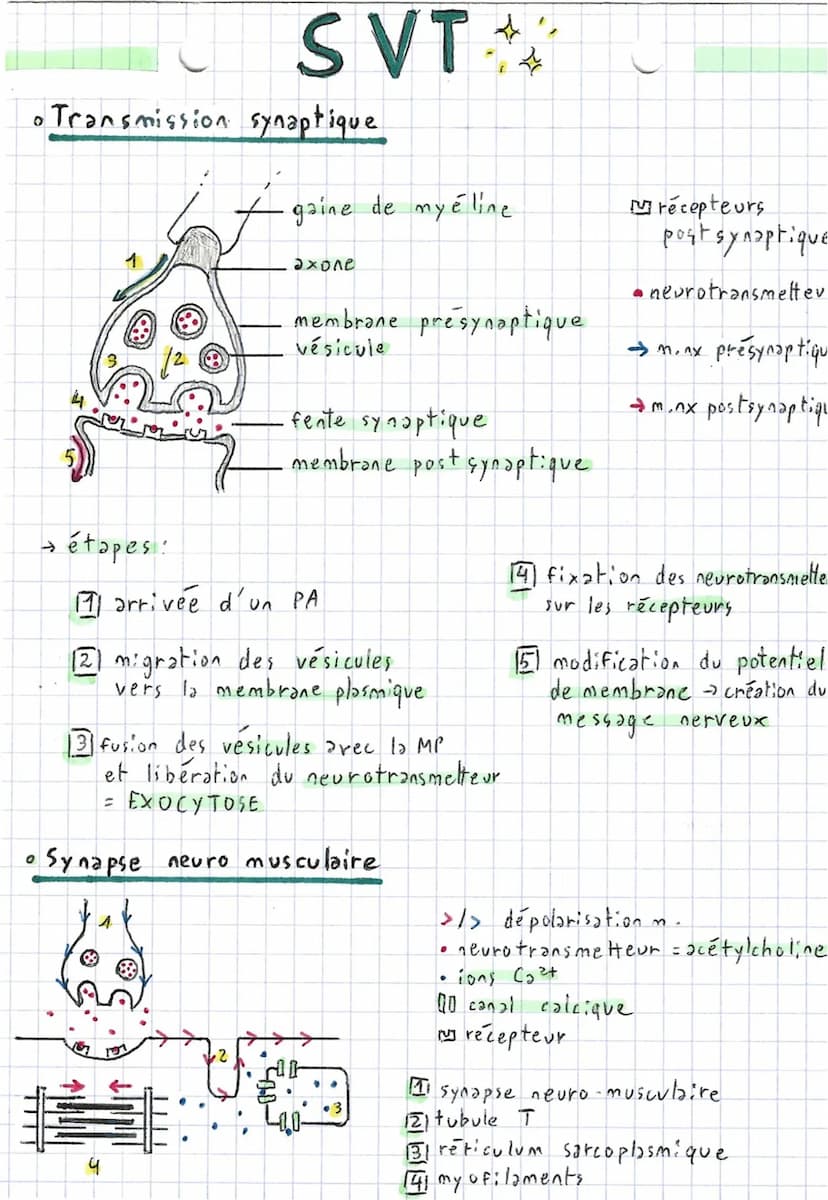 SVT
Transmission synaptique
gaine de myéline
axone
membrane présynaptique
vésicule
fente synaptique
membrane postsynaptique
récepteurs
postsynaptique
neurotransmetteu
m.nx présynaptiqu
m.nx postsynaptiqu
1
2
3
4
5
→ étapes:
1 arrivée d'un PA
2 migration des vésicules
vers la membrane plasmique
3 fusion des vésicules avec la MP
et libération du neurotransmetteur
= EXOCYTOSE
4 fixation des neurotransmette
sur les récepteurs
5 modification du potentiel
de membrane → création du
message nerveux
Synapse neuro musculaire
1
2
3
4
>/> dépolarisation m.
neurotransmetteur = acétylcholine
ions Ca²⁺
canal calcique
récepteur
1 synapse neuro-musculaire
2 tubule T
3 réticulum sarcoplasmique
4 myofilaments